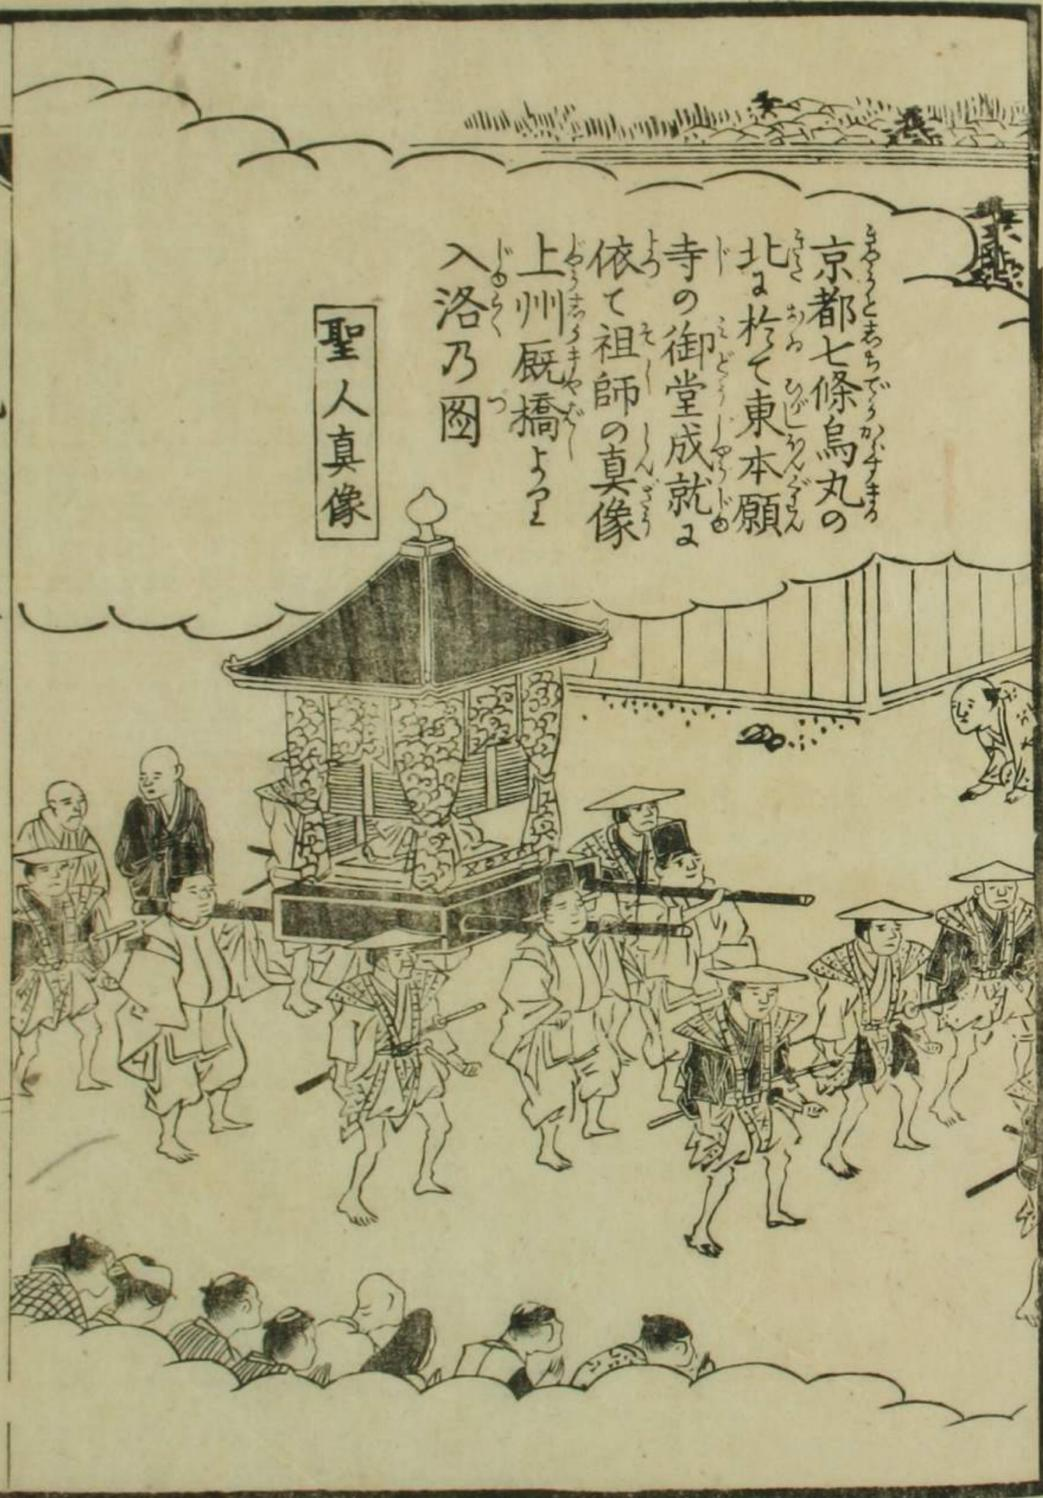 京都七條烏丸の
北に於て東本願
寺の御堂成就に
依て祖師の真像
上州厩橋より
入洛乃圖
聖人真像